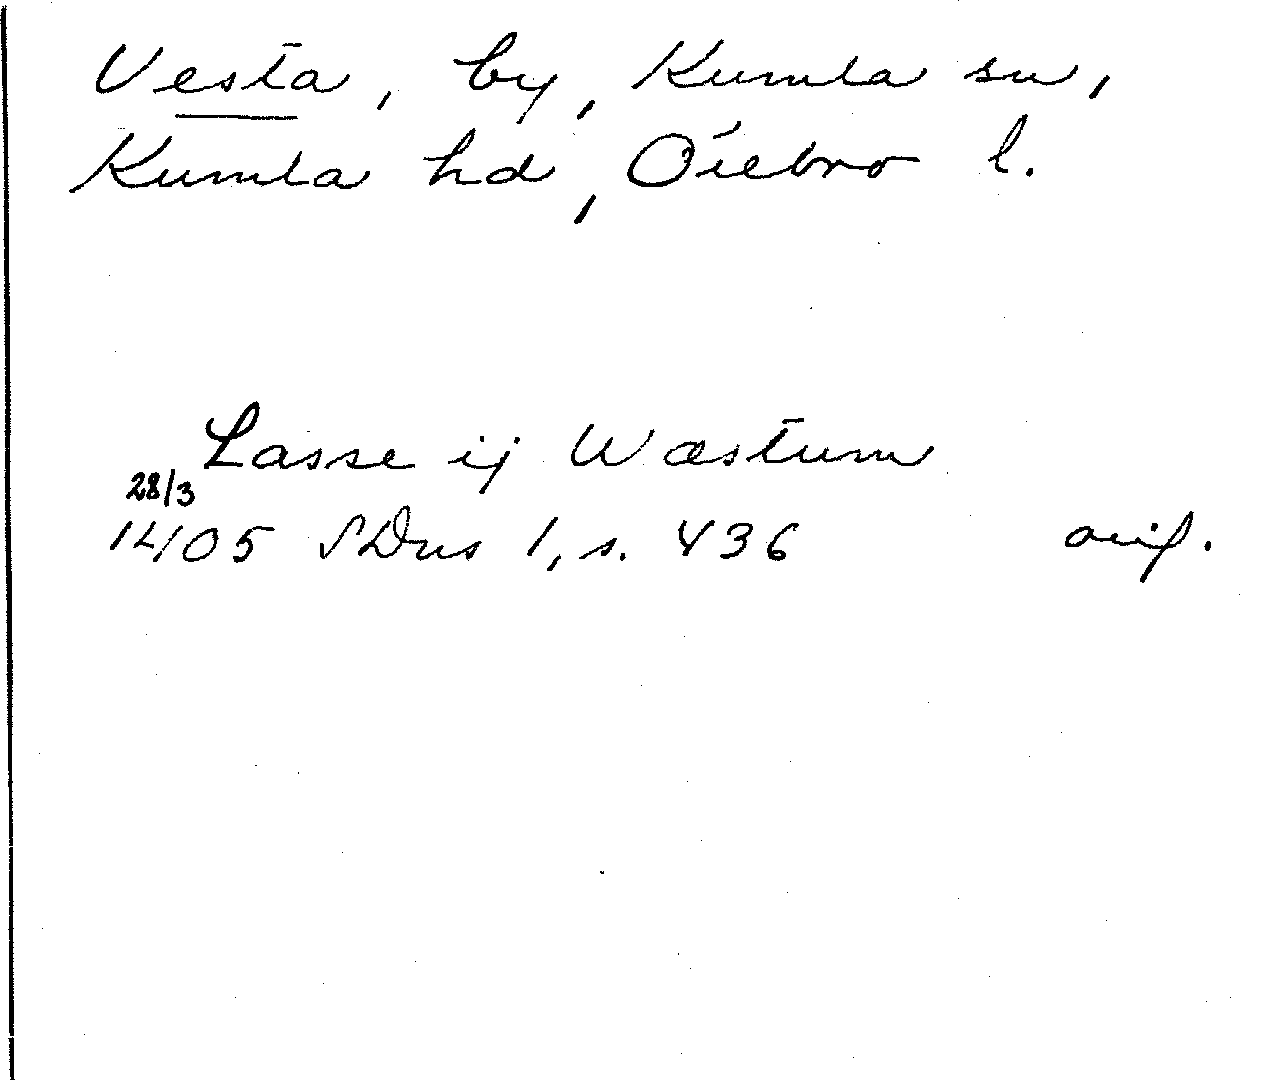 Vesta, by, Kumla sn,
Kumla hd, Örebro l.
Lasse ij Wæstum
28/3
1405 SDns 1, s. 436 orig.